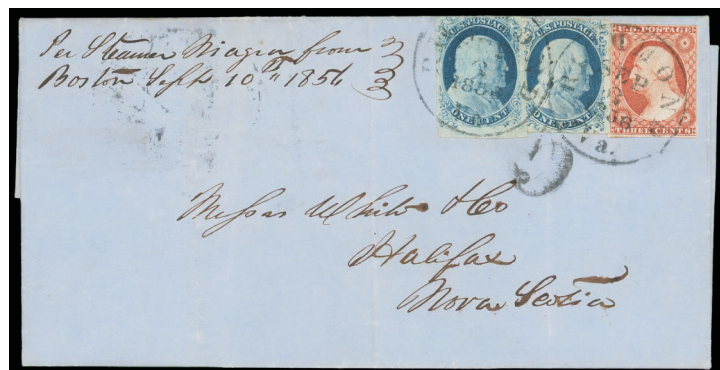 Per Steamer Niagra from
Boston Sept 10th 1856
U.S. POSTAGE
ONE CENT
U.S. POSTAGE
ONE CENT
U.S. POSTAGE
THREE CENTS
SEP
Va.
Messrs White & Co
Halifax
Nova Scotia